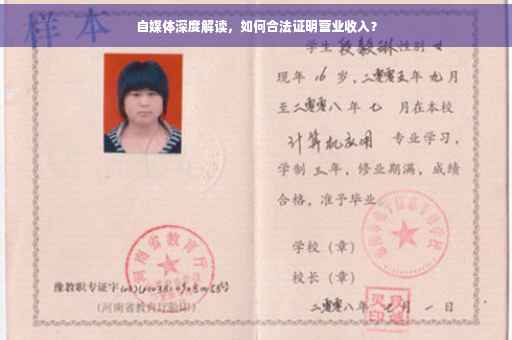 自媒体深度解读，如何合法证明营业收入？
样本
学生段毅琳性别女
现年16岁，二零零五年九月
至二零零八年七月在本校
计算机应用 专业学习，
学制三年，修业期满，成绩
合格，准予毕业
学校（章）
校长（章）
二零零八年 月一日
河南省教育厅
豫教职专证字
（河南省教育厅验印）